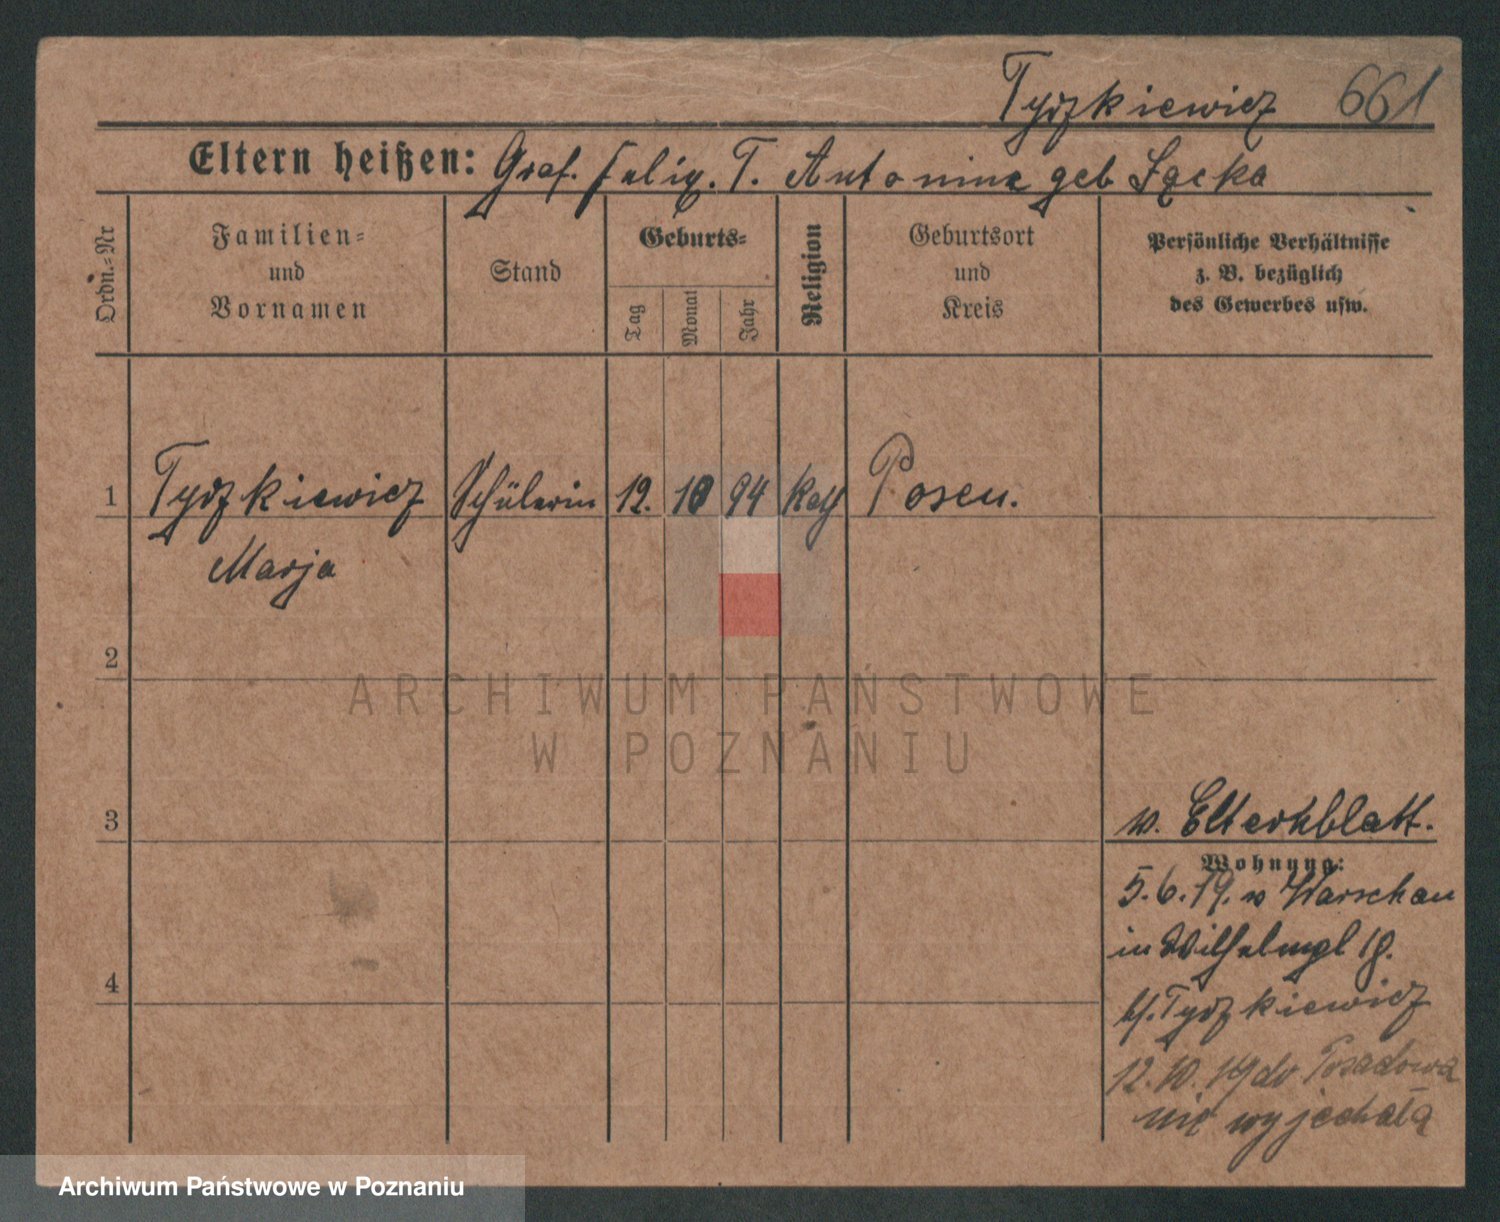 Tyszkiewicz 661
Eltern heißen: Graf. Felix. T. Antonina geb Łącka
Ordn.-Nr
Familien-
und
Vornamen
Stand
Geburts-
Tag
Monat
Jahr
Religion
Geburtsort
und
Kreis
Persönliche Verhältnisse
z. B. bezüglich
des Gewerbes usw.
1 Tyszkiewicz Schülerin 12. 10 94 kath Posen.
Marja
2
3
4
v. Elternblatt.
Wohnung:
5.6.19. v Warschau
in Wilhelmpl 18.
b/. Tyszkiewicz
12.10.19 do Posadowa
nie wyjechała
ARCHIWUM PAŃSTWOWE
W POZNANIU
Archiwum Państwowe w Poznaniu